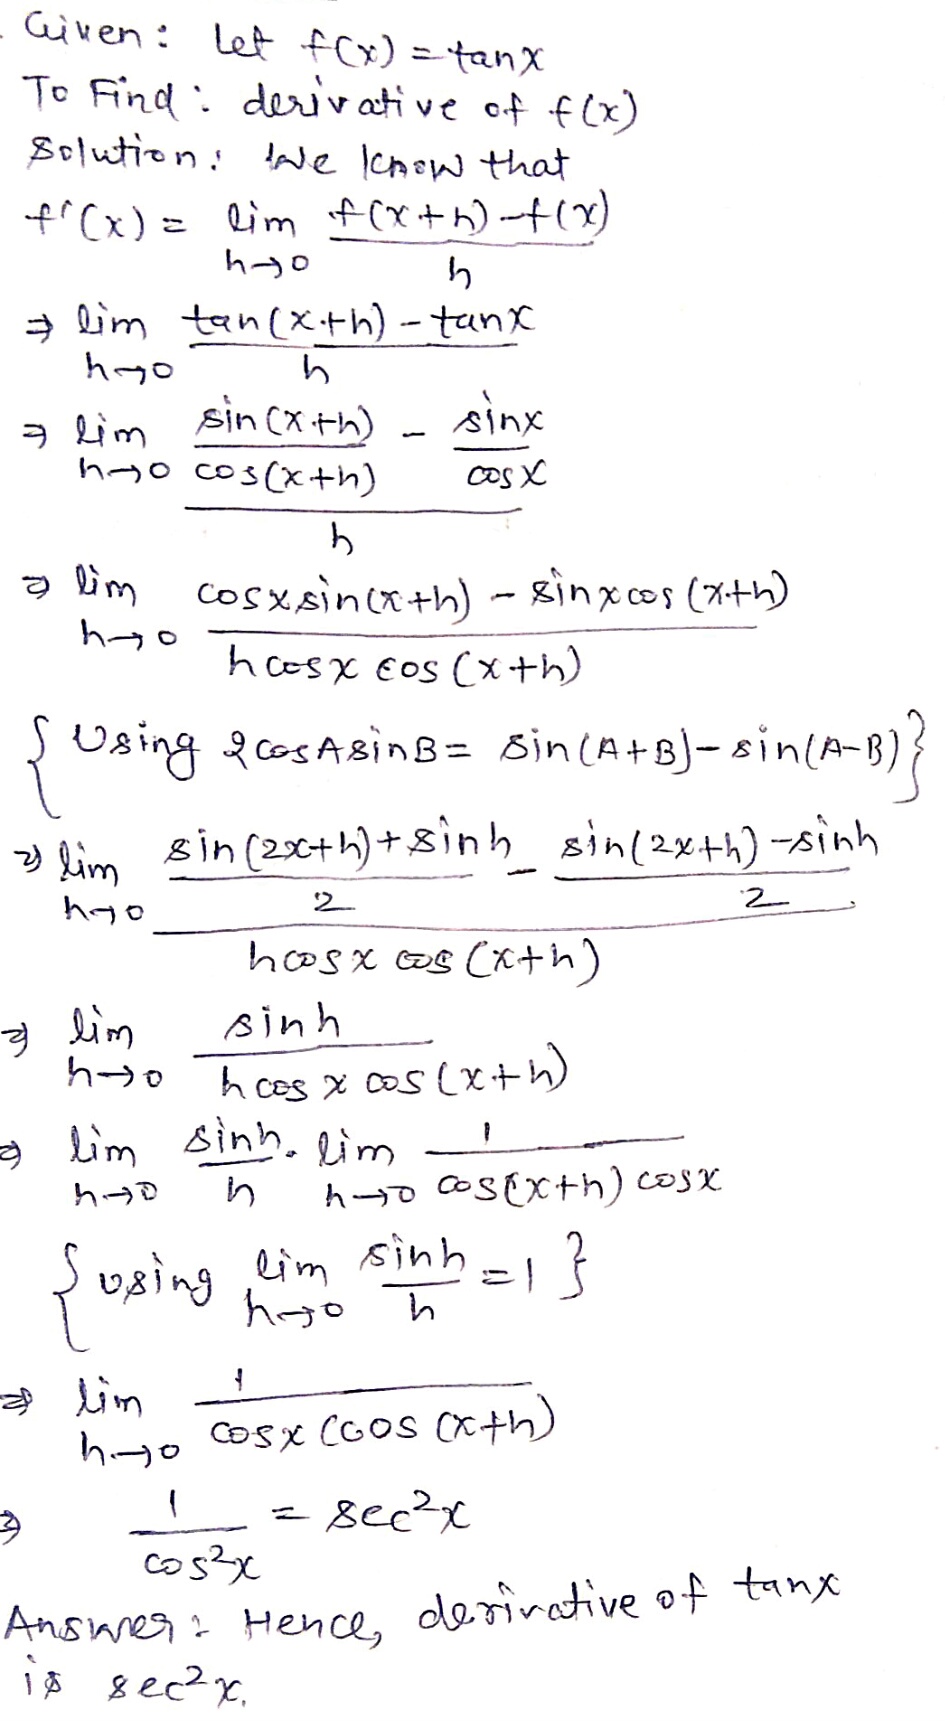 Given: Let f(x) = tanx
To Find: derivative of f(x)
Solution: We know that
f'(x) = lim f(x+h)-f(x)
h→0 h
⇒ lim tan(x+h) - tanx
h→0 h
⇒ lim sin(x+h) - sinx
h→0 cos(x+h) cosx
h
⇒ lim cosxsin(x+h) - sinxcos(x+h)
h→0 hcosx cos(x+h)
{Using 2cosAsinB = sin(A+B)-sin(A-B)}
⇒ lim sin(2x+h)+sinh - sin(2x+h)-sinh
h→0 2 2
hcosx cos(x+h)
⇒ lim sinh
h→0 hcosx cos(x+h)
⇒ lim sinh . lim 1
h→0 h h→0 cos(x+h) cosx
{using lim sinh = 1}
h→0 h
⇒ lim 1
h→0 cosx (cos(x+h)
⇒ 1 = sec²x
cos²x
Answer: Hence, derivative of tanx
is sec²x.